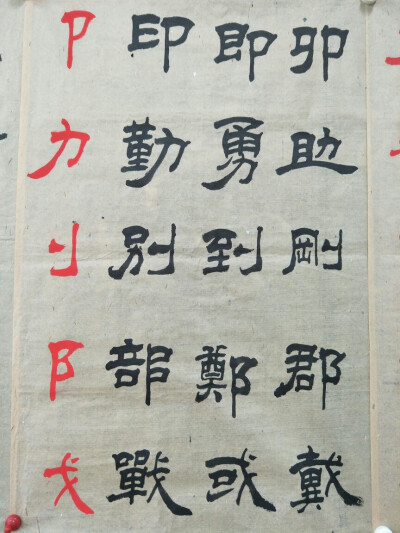 卩 印 即 卯
力 勤 勇 助
刂 别 到 剛
阝 部 鄭 郡
戈 戰 或 戴